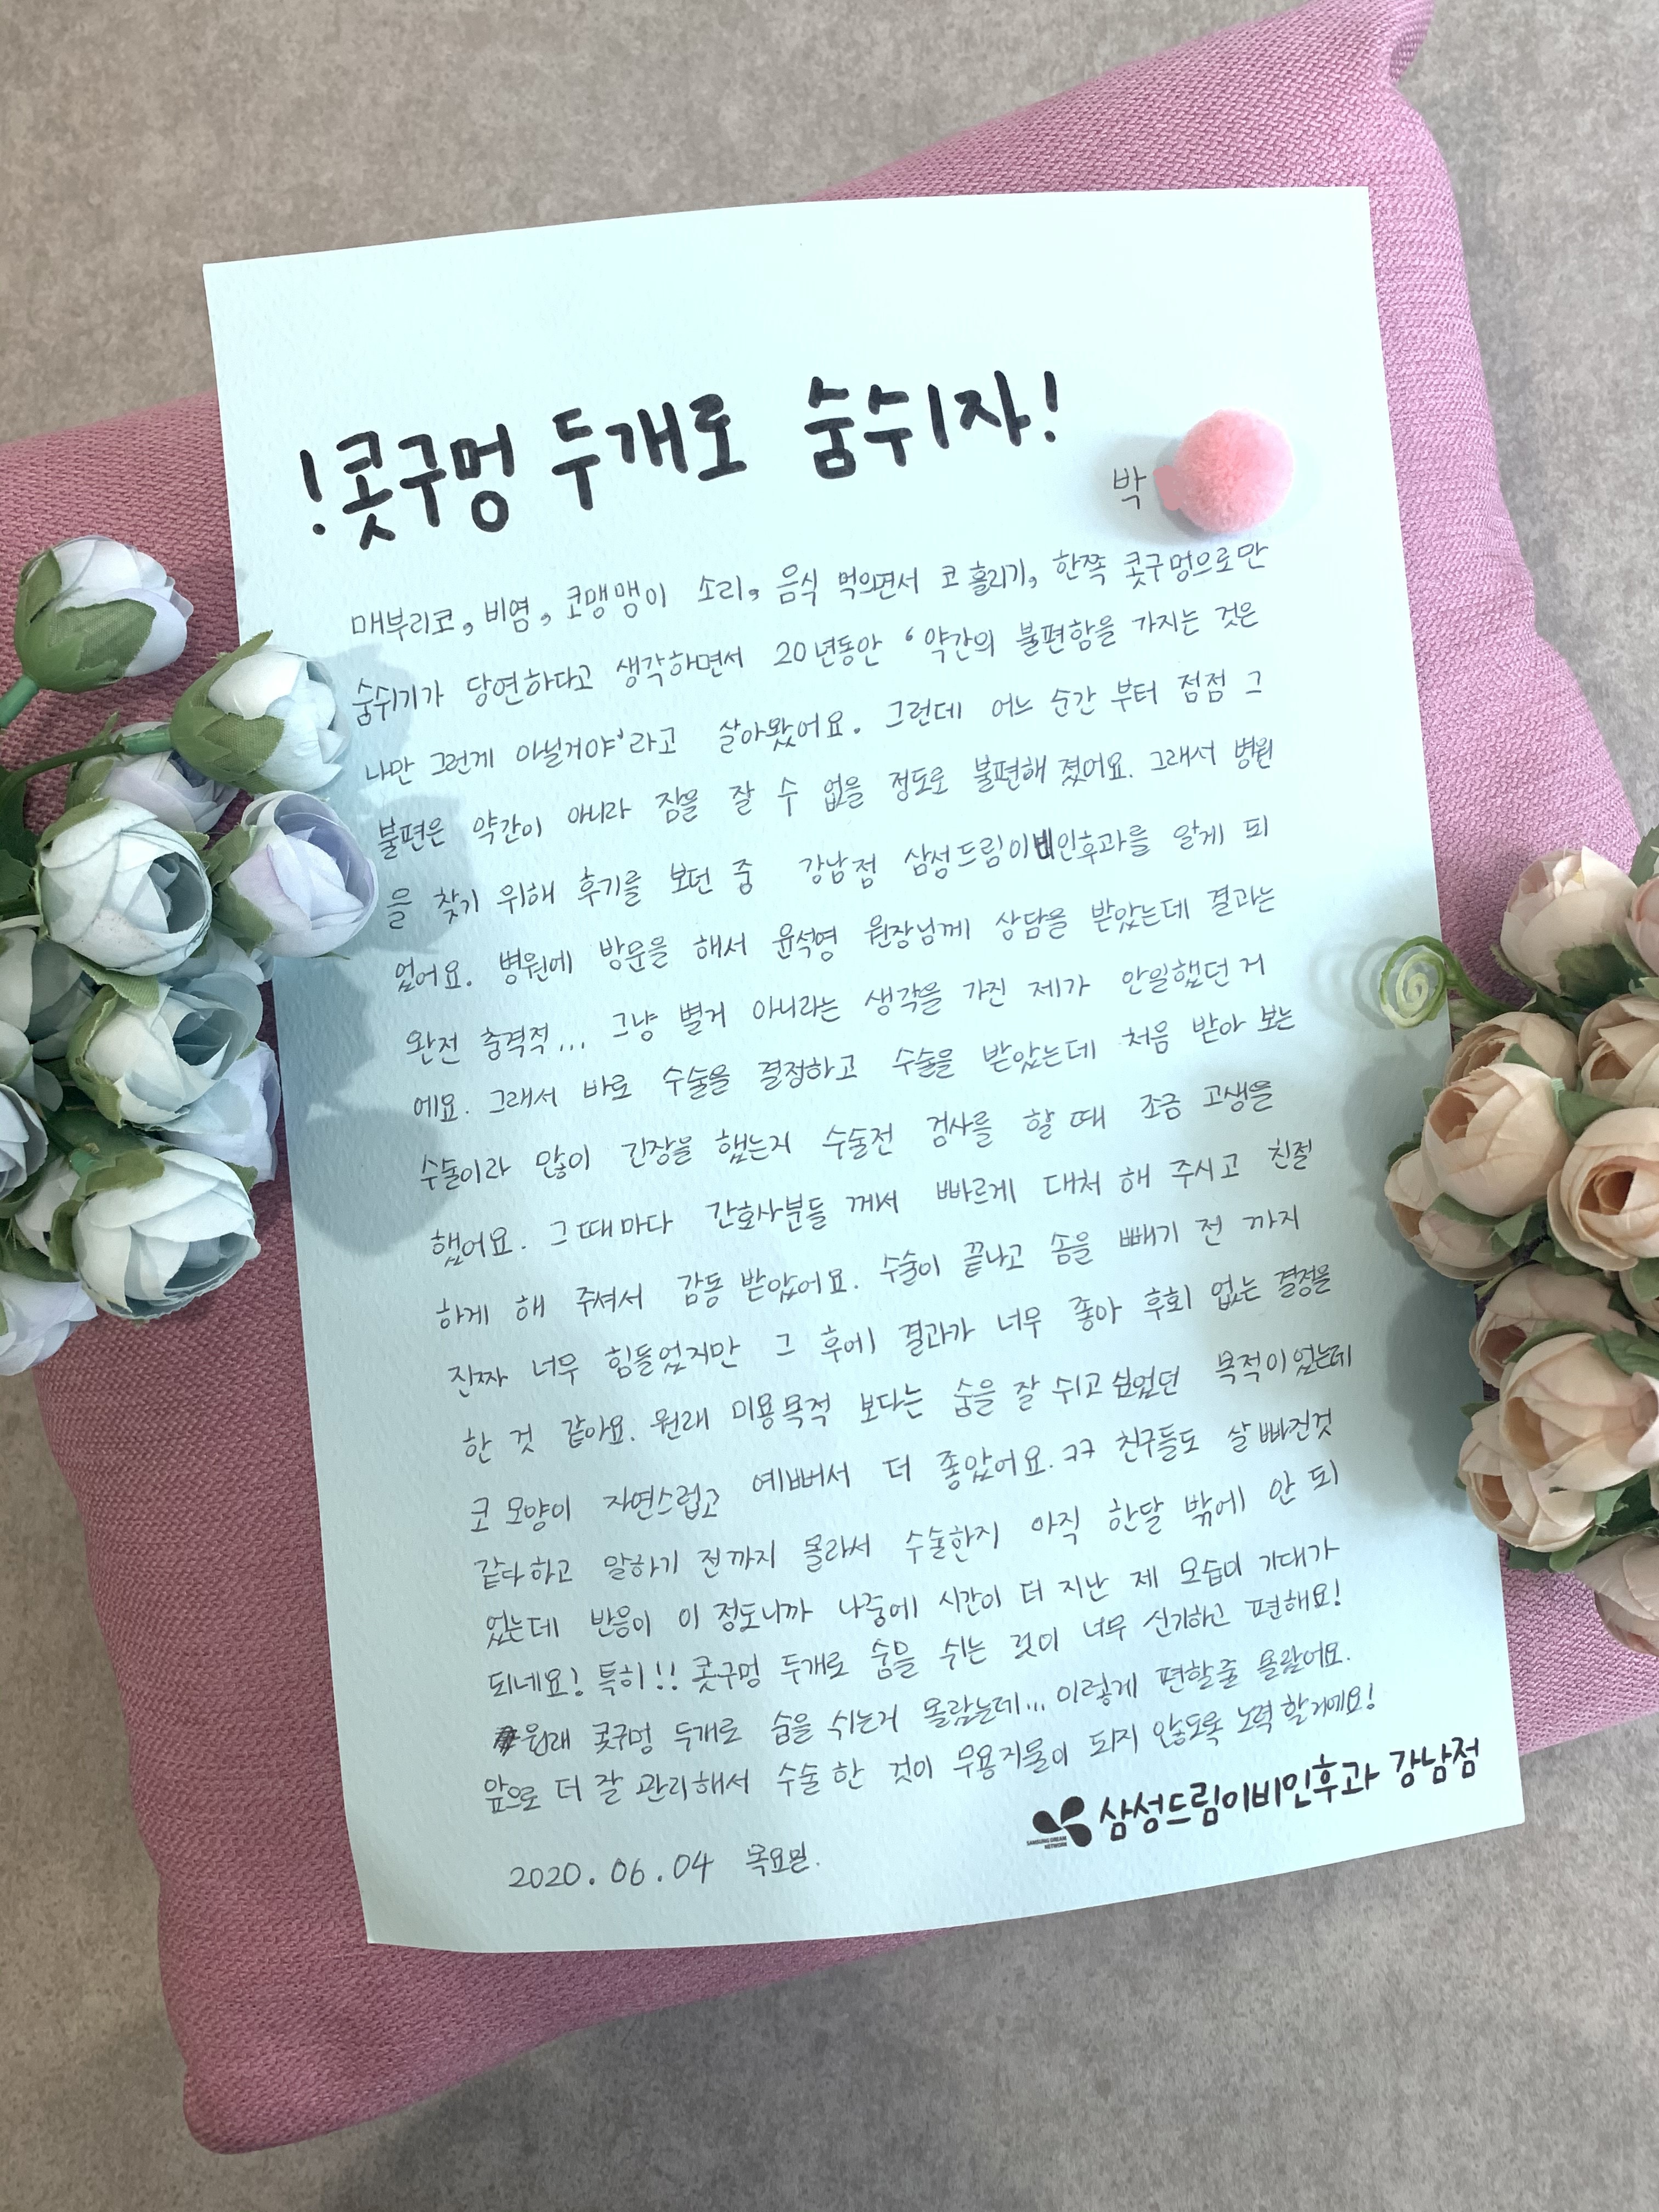 !콧구멍 두개로 숨쉬자!
박
매부리코, 비염, 코맹맹이 소리, 음식 먹으면서 코 흘리기, 한쪽 콧구멍으로만
숨쉬기가 당연하다고 생각하면서 20년동안 '약간의 불편함을 가지는 것은
나만 그런게 아닐거야'라고 살아왔어요. 그런데 어느 순간 부터 점점 그
불편은 약간이 아니라 잠을 잘 수 없을 정도로 불편해 졌어요. 그래서 병원
을 찾기 위해 후기를 보던 중 강남점 삼성드림이비인후과를 알게 되
었어요. 병원에 방문을 해서 윤석영 원장님께 상담을 받았는데 결과는
완전 충격적... 그냥 별거 아니라는 생각을 가진 제가 안일했던 거
에요. 그래서 바로 수술을 결정하고 수술을 받았는데 처음 받아 보는
수술이라 많이 긴장을 했는지 수술전 검사를 할 때 조금 고생을
했어요. 그때마다 간호사분들 께서 빠르게 대처 해 주시고 친절
하게 해 주셔서 감동 받았어요. 수술이 끝나고 솜을 빼기 전 까지
진짜 너무 힘들었지만 그 후에 결과가 너무 좋아 후회 없는 결정을
한 것 같아요. 원래 미용목적 보다는 숨을 잘 쉬고 싶었던 목적이었는데
코 모양이 자연스럽고 예뻐서 더 좋았어요.ㅋㅋ 친구들도 살 빠진것
같다하고 말하기 전까지 몰라서 수술한지 아직 한달 밖에 안 되
었는데 반응이 이 정도니까 나중에 시간이 더 지난 제 모습이 기대가
되네요! 특히!! 콧구멍 두개로 숨을 쉬는 것이 너무 신기하고 편해요!
원래 콧구멍 두개로 숨을 쉬는거 몰랐는데... 이렇게 편할줄 몰랐어요.
앞으로 더 잘 관리해서 수술 한 것이 무용지물이 되지 않도록 노력 할거에요!
SAMSUNG DREAM NETWORK 삼성드림이비인후과 강남점
2020. 06. 04 목요일.